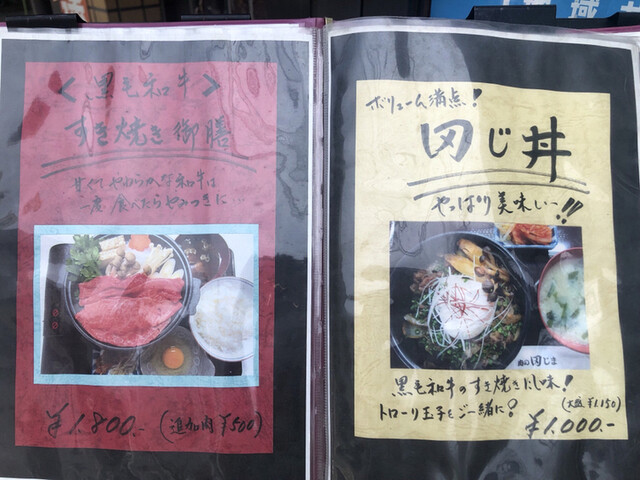 <黒毛和牛>
すき焼き御膳
甘くてやわらかい和牛は
一度食べたらやみつきに…
¥1,800.- (追加肉¥500)
ボリューム満点!
田じ丼
やっぱり美味しい!!
田じま
黒毛和牛のすき焼きにし味!
トローリ玉子をご一緒に?
(大盛¥1,150)
¥1,000.-